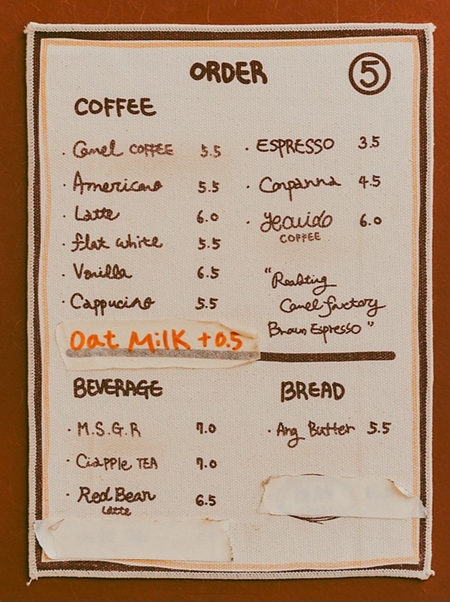 ORDER
5
COFFEE
· Camel COFFEE 5.5
· Americano 5.5
· Latte 6.0
· flat white 5.5
· Vanilla 6.5
· Cappucino 5.5
Oat Milk + 0.5
· ESPRESSO 3.5
· Conpanna 4.5
6.0
COFFEE
"Roasting
Camel factory
Brown Espresso"
BEVERAGE
· M.S.G.R 7.0
· Ciapple TEA 7.0
· Red Bean 6.5
latte
BREAD
· Ang Butter 5.5